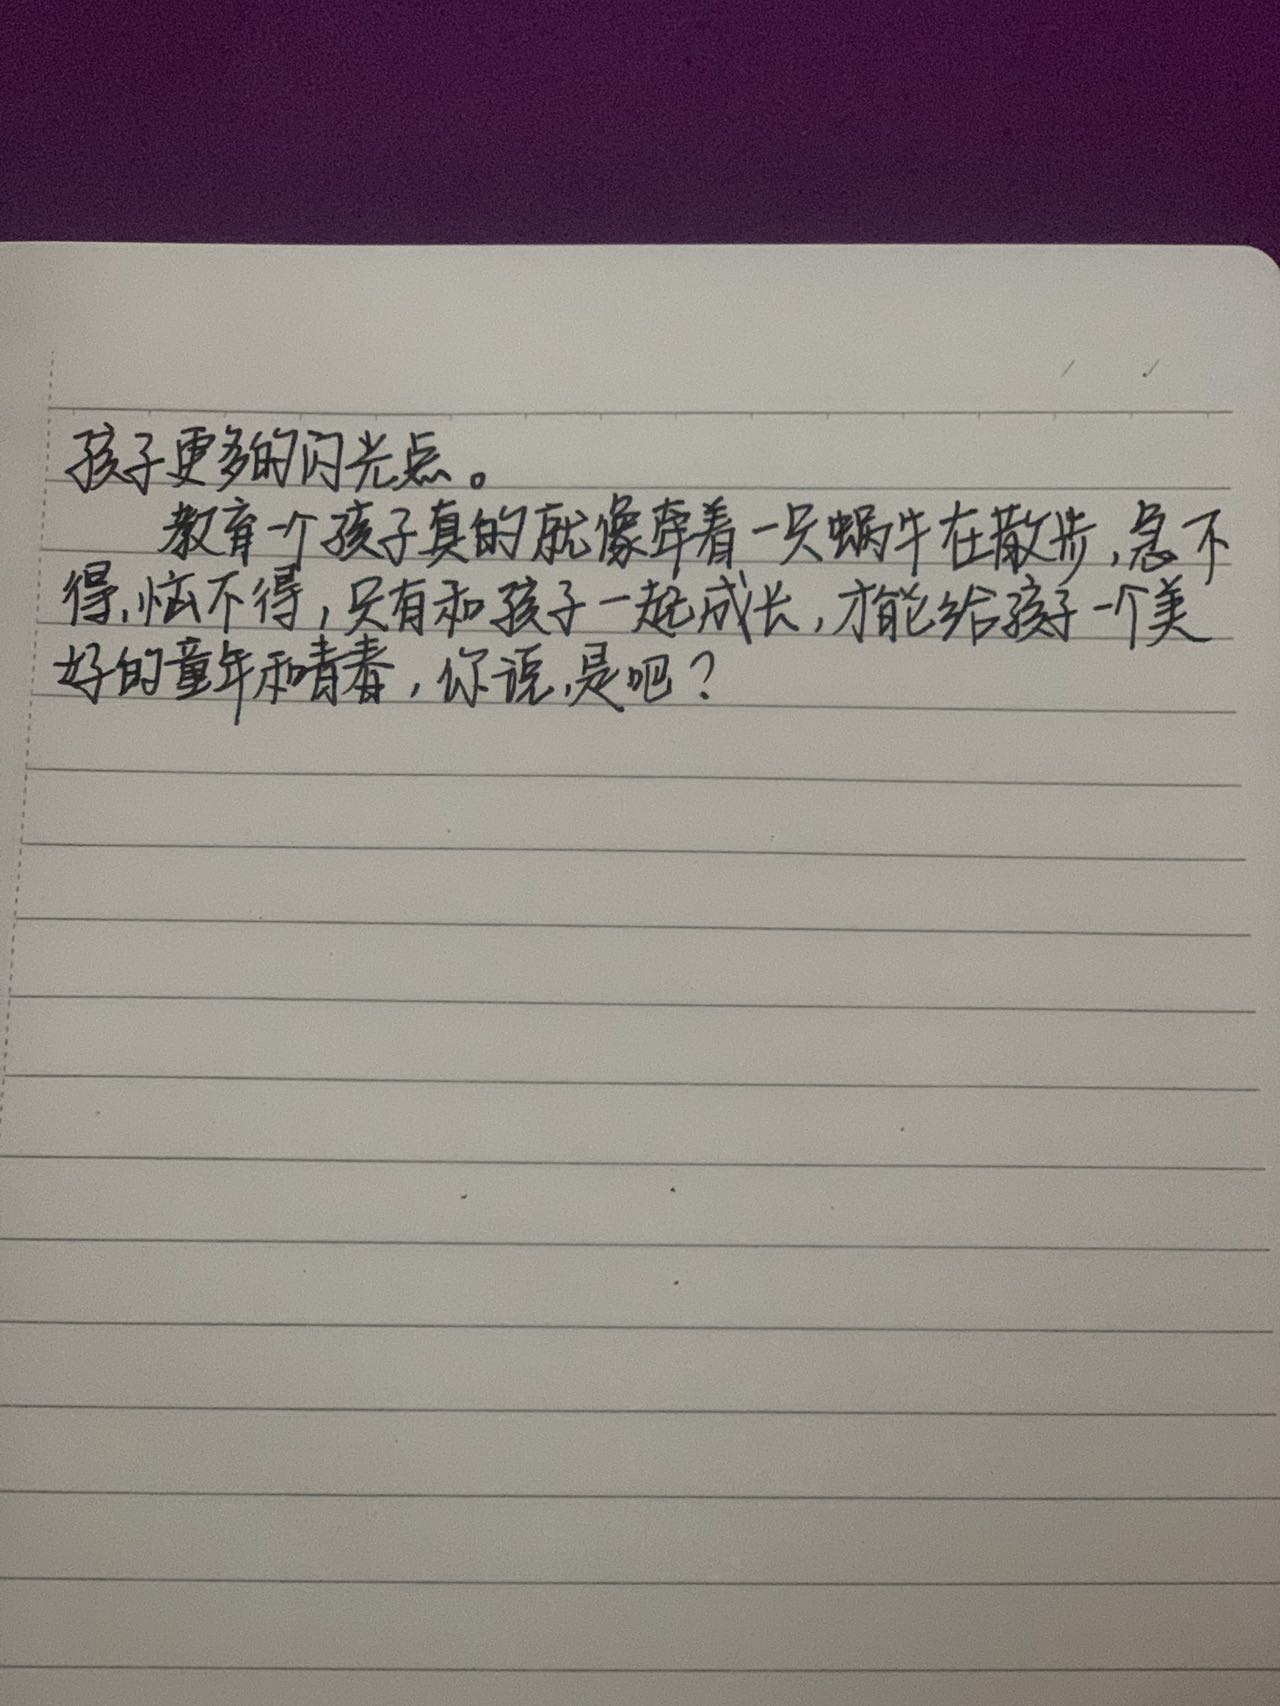 孩子更多的闪光点。
教育一个孩子真的就像牵着一只蜗牛在散步,急不
得,恼不得,只有和孩子一起成长,才能给孩子一个美
好的童年和青春,你说,是吧?